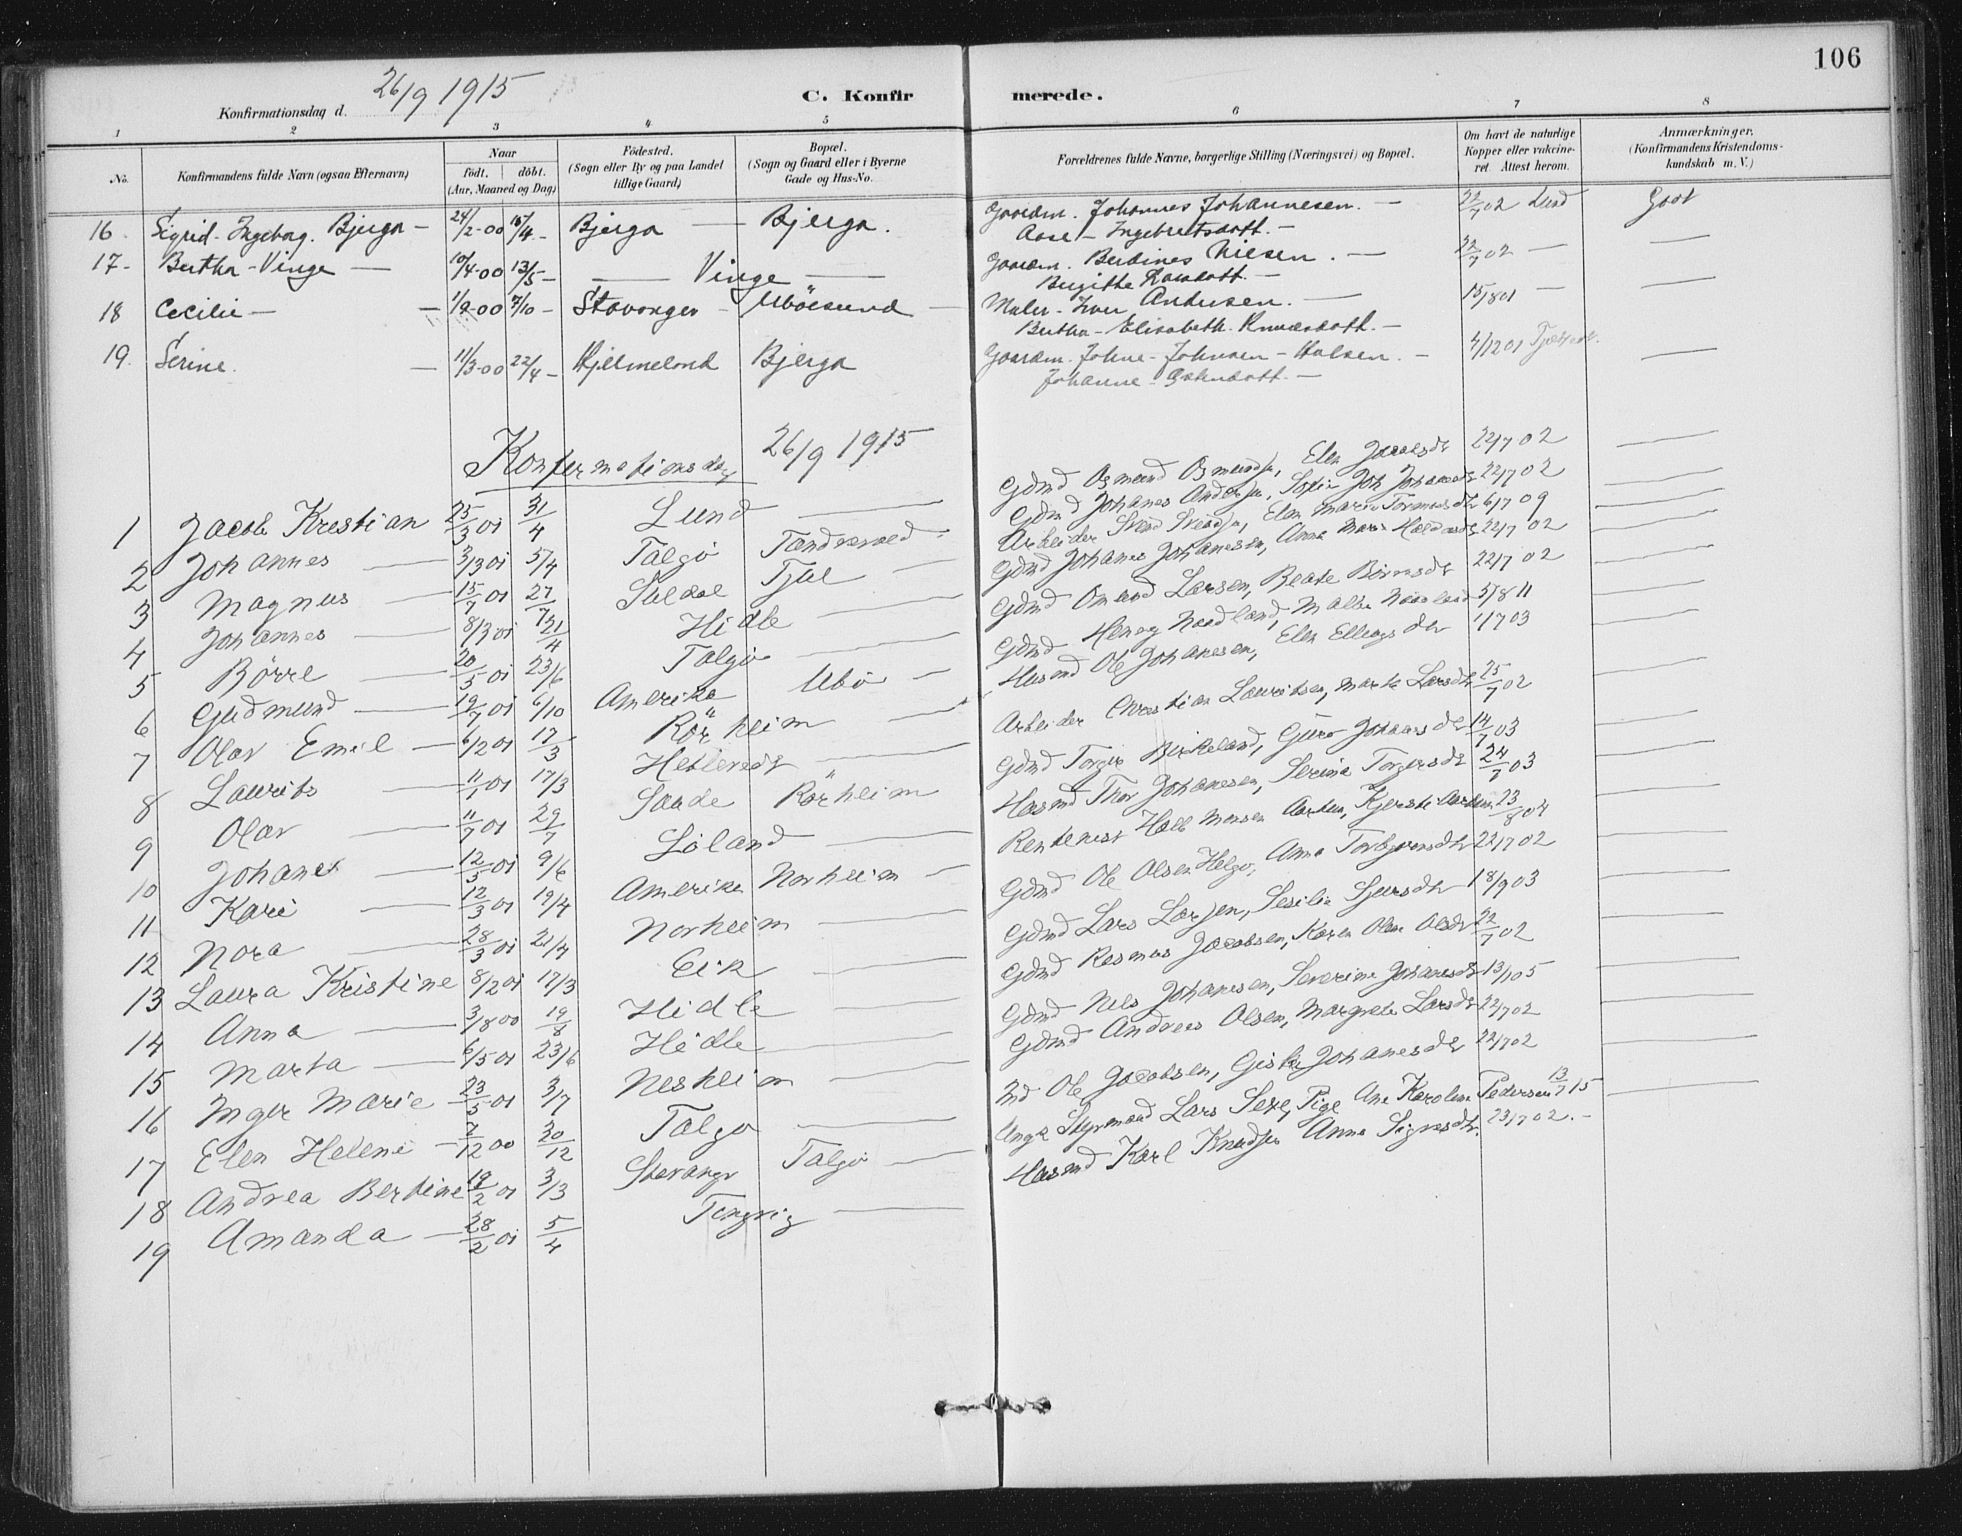 106
Konfirmationsdag d. 26/9 1915
C. Konfirmerede.
1 2 3 4 5 6 7 8
No.
Konfirmandens fulde Navn (ogsaa Efternavn)
Naar
födt. döbt.
(Aar, Maaned og Dag)
Födested.
(Sogn eller By og paa Landet
tillige Gaard)
Bopæl.
(Sogn og Gaard eller i Byerne
Gade og Hus-No.
Forældrenes fulde Navne, borgerlige Stilling (Næringsvei) og Bopæl.
Om havt de naturlige
Kopper eller vakcine-
ret. Attest herom.
Anmærkninger.
(Konfirmandens Kristendoms-
kundskab m. V.)
16. Sigrid-Ingeborg. Bjerga — 24/2-00 16/4 - Bjerga — Bjerga. Gaardm. Johannes Johannesen. — 22/7 02 Lund Godt
Aase - Ingebretsdatt. —
17- Bertha - Vinge — 10/4-00 13/5- — Vinge — Gaardm. Berdines Nielsen. — 22/7 02 — —
Birgithe Larsdatt. —
18 Cecilie — 1/9-00 7/10 - Stavanger - Uböesund — Maler - Iver Andersen. — 15/8 01 —
Bertha - Elisabeth. Knudsdatt. —
19. Serine. — 11/3-00 22/4 - Hjelmeland Bjerga Gaardm. Johne - Johnsen - Halsen. — 4/12 01 —
Johanne - Johnsdatt. —
Konfirmationsdag 26/9 1915
1 Jacob Krestian 25/3 01 31/4 Lund — Gdmd Osmund Osmundsen, Elen Jacobsdtr 22/7 02 —
2 Johannes — 3/3 01 5/4 Talgö Tandrevold - Gdmd Johanes Andersen, 22/7 02 —
3 Magnus — 15/7 01 27/7 Suldal Tjul — Arbeider Svend Svendsen, Elen Marie Tormodsdtr 6/7 09 —
4 Johannes — 8/3 01 21/4 Hidle — Gdmd Johanes Johanesen, Anna Marie 22/7 02 —
5 Börre — 20/5 01 23/6 Talgö — Gdmd Omund Larsen, Beate Börresdtr 22/7 02 —
6 Gudmund — 19/7 01 6/10 Amerika Ubö — Gdmd Henrg Nordland, Malla Nordland 5/8 11 —
7 Olav Emil — 6/2 01 17/3 Rörheim — Husmd Ole Johanesen, Elen Ellingsdtr 1/7 03 —
8 Laurits — 11/1 01 17/3 Hetlevedt — Arbeider Christian Lauritsen, Marte Larsdtr 25/7 02 —
9 Olav — 11/7 01 29/7 Saude Rörheim Gdmd Torger Birkeland, Guro Johannesdtr 14/7 03 —
10 Johanes — 12/5 01 9/6 Löland — Husmd Thor Johanesen, Serina Torgersdtr 24/7 03 —
11 Kari — 12/3 01 19/4 Amerika Norheim — Rentenist Halb Monsen Aarhus, Kjersti Aarhus 23/8 04 —
12 Nora — 28/3 01 21/4 Norheim — Gdmd Ole Olsen Helgö, Anna Torbjörnsdtr 22/7 02 —
13 Laura Kristine 8/2 01 17/3 Eik — Gdmd Lars Larsen, Sesilie Sjursdtr 18/9 03 —
14 Anna — 3/8 00 19/8 Hidle — Gdmd Rasmus Jacobsen, Karen Oline Olsdtr 22/7 02 —
15 Marta — 6/5 01 23/6 Hidle — Gdmd Nils Johanesen, Severine Johanesdtr 13/1 05 —
16 Inger Marie 23/5 01 3/7 Nesheim — Gdmd Andreas Olsen, Margrete Larsdtr 22/7 02 —
17 Elen Helene — 7/12 00 30/12 Talgö — Md Ole Jacobsen, Giske Johanesdtr 22/7 02 —
18 Andrea Bertine 18/2 01 3/3 Stavanger Talgö — Ungk Styrmand Lars Sexe, Pige Ane Karoline Pedersen 13/7 15 —
19 Amanda — 28/2 01 5/4 Tingvig — Husmd Karl Knudsen Anna Sigvesdtr. 23/7 02. -